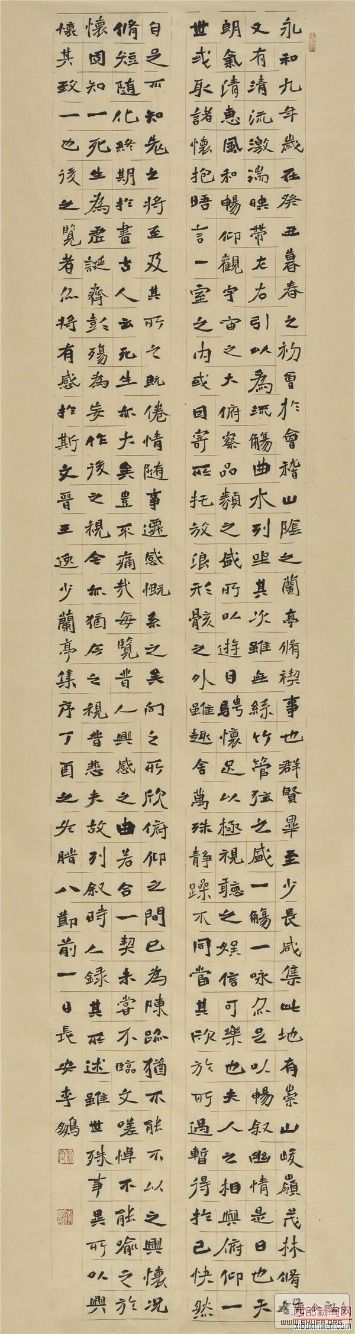 永和九年歲在癸丑暮春之初會於會稽山陰之蘭亭脩禊事也群賢畢至少長咸集此地有崇山峻嶺茂林脩
又有清流激湍映帶左右引以為流觴曲水列坐其次雖無絲竹管弦之盛一觴一詠亦足以暢敘幽情是日也天
朗氣清惠風和暢仰觀宇宙之大俯察品類之盛所以遊目騁懷足以極視聽之娛信可樂也夫人之相與俯仰一
世或取諸懷抱晤言一室之內或因寄所托放浪形骸之外雖趣舍萬殊靜躁不同當其欣於所遇暫得於己快然
自足不知老之將至及其所之既倦情隨事遷感慨系之矣向之所欣俯仰之間已為陳跡猶不能不以之興懷況
脩短隨化終期於盡古人云死生亦大矣豈不痛哉每覽昔人興感之由若合一契未嘗不臨文嗟悼不能喻之於
懷固知一死生為虛誕齊彭殤為妄作後之視今亦猶今之視昔悲夫故列叙時人錄其所述雖世殊事異所以興
懷其致一也後之覽者亦將有感於斯文晉王逸少蘭亭集序丁酉之冬腊八節前一日長安李